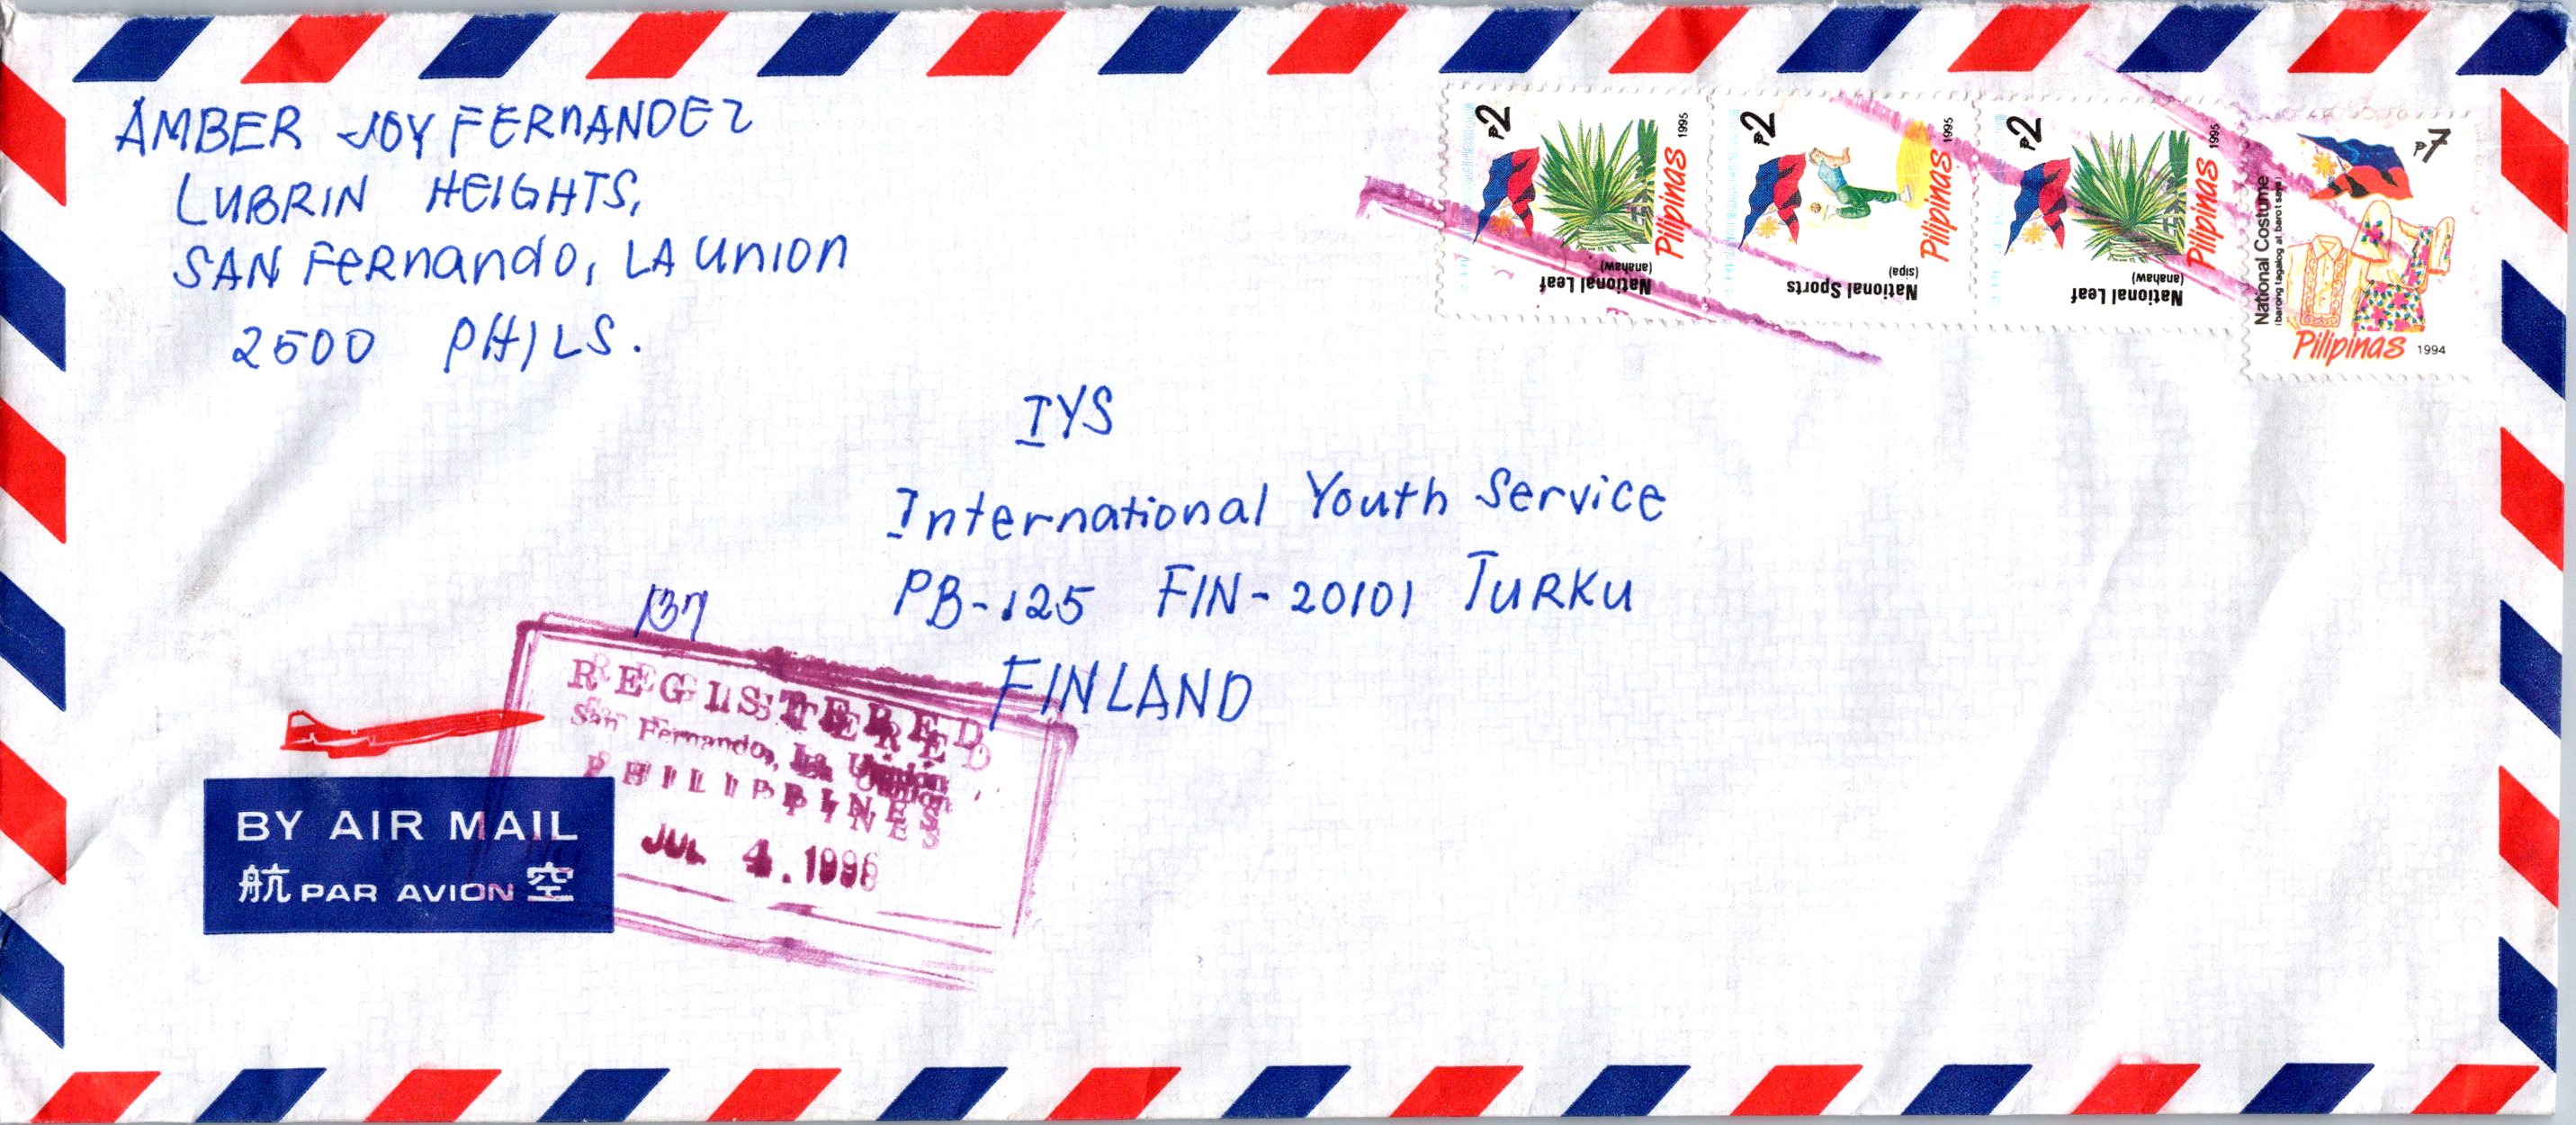 AMBER JOY FERNANDEZ
LUBRIN HEIGHTS,
SAN FERNANDO, LA UNION
2500 PHILS.
₱2
1995
Pilipinas
National Leaf
(anahaw)
₱2
1995
Pilipinas
National Sports
(sipa)
₱2
1995
Pilipinas
National Leaf
(anahaw)
₱7
National Costume
(barong tagalog at barot saya)
Pilipinas 1994
IYS
International Youth Service
PB-125 FIN-20101 TURKU
FINLAND
137
REGISTERED
San Fernando, La Union
PHILIPPINES
JUL 4.1996
BY AIR MAIL
航 PAR AVION 空